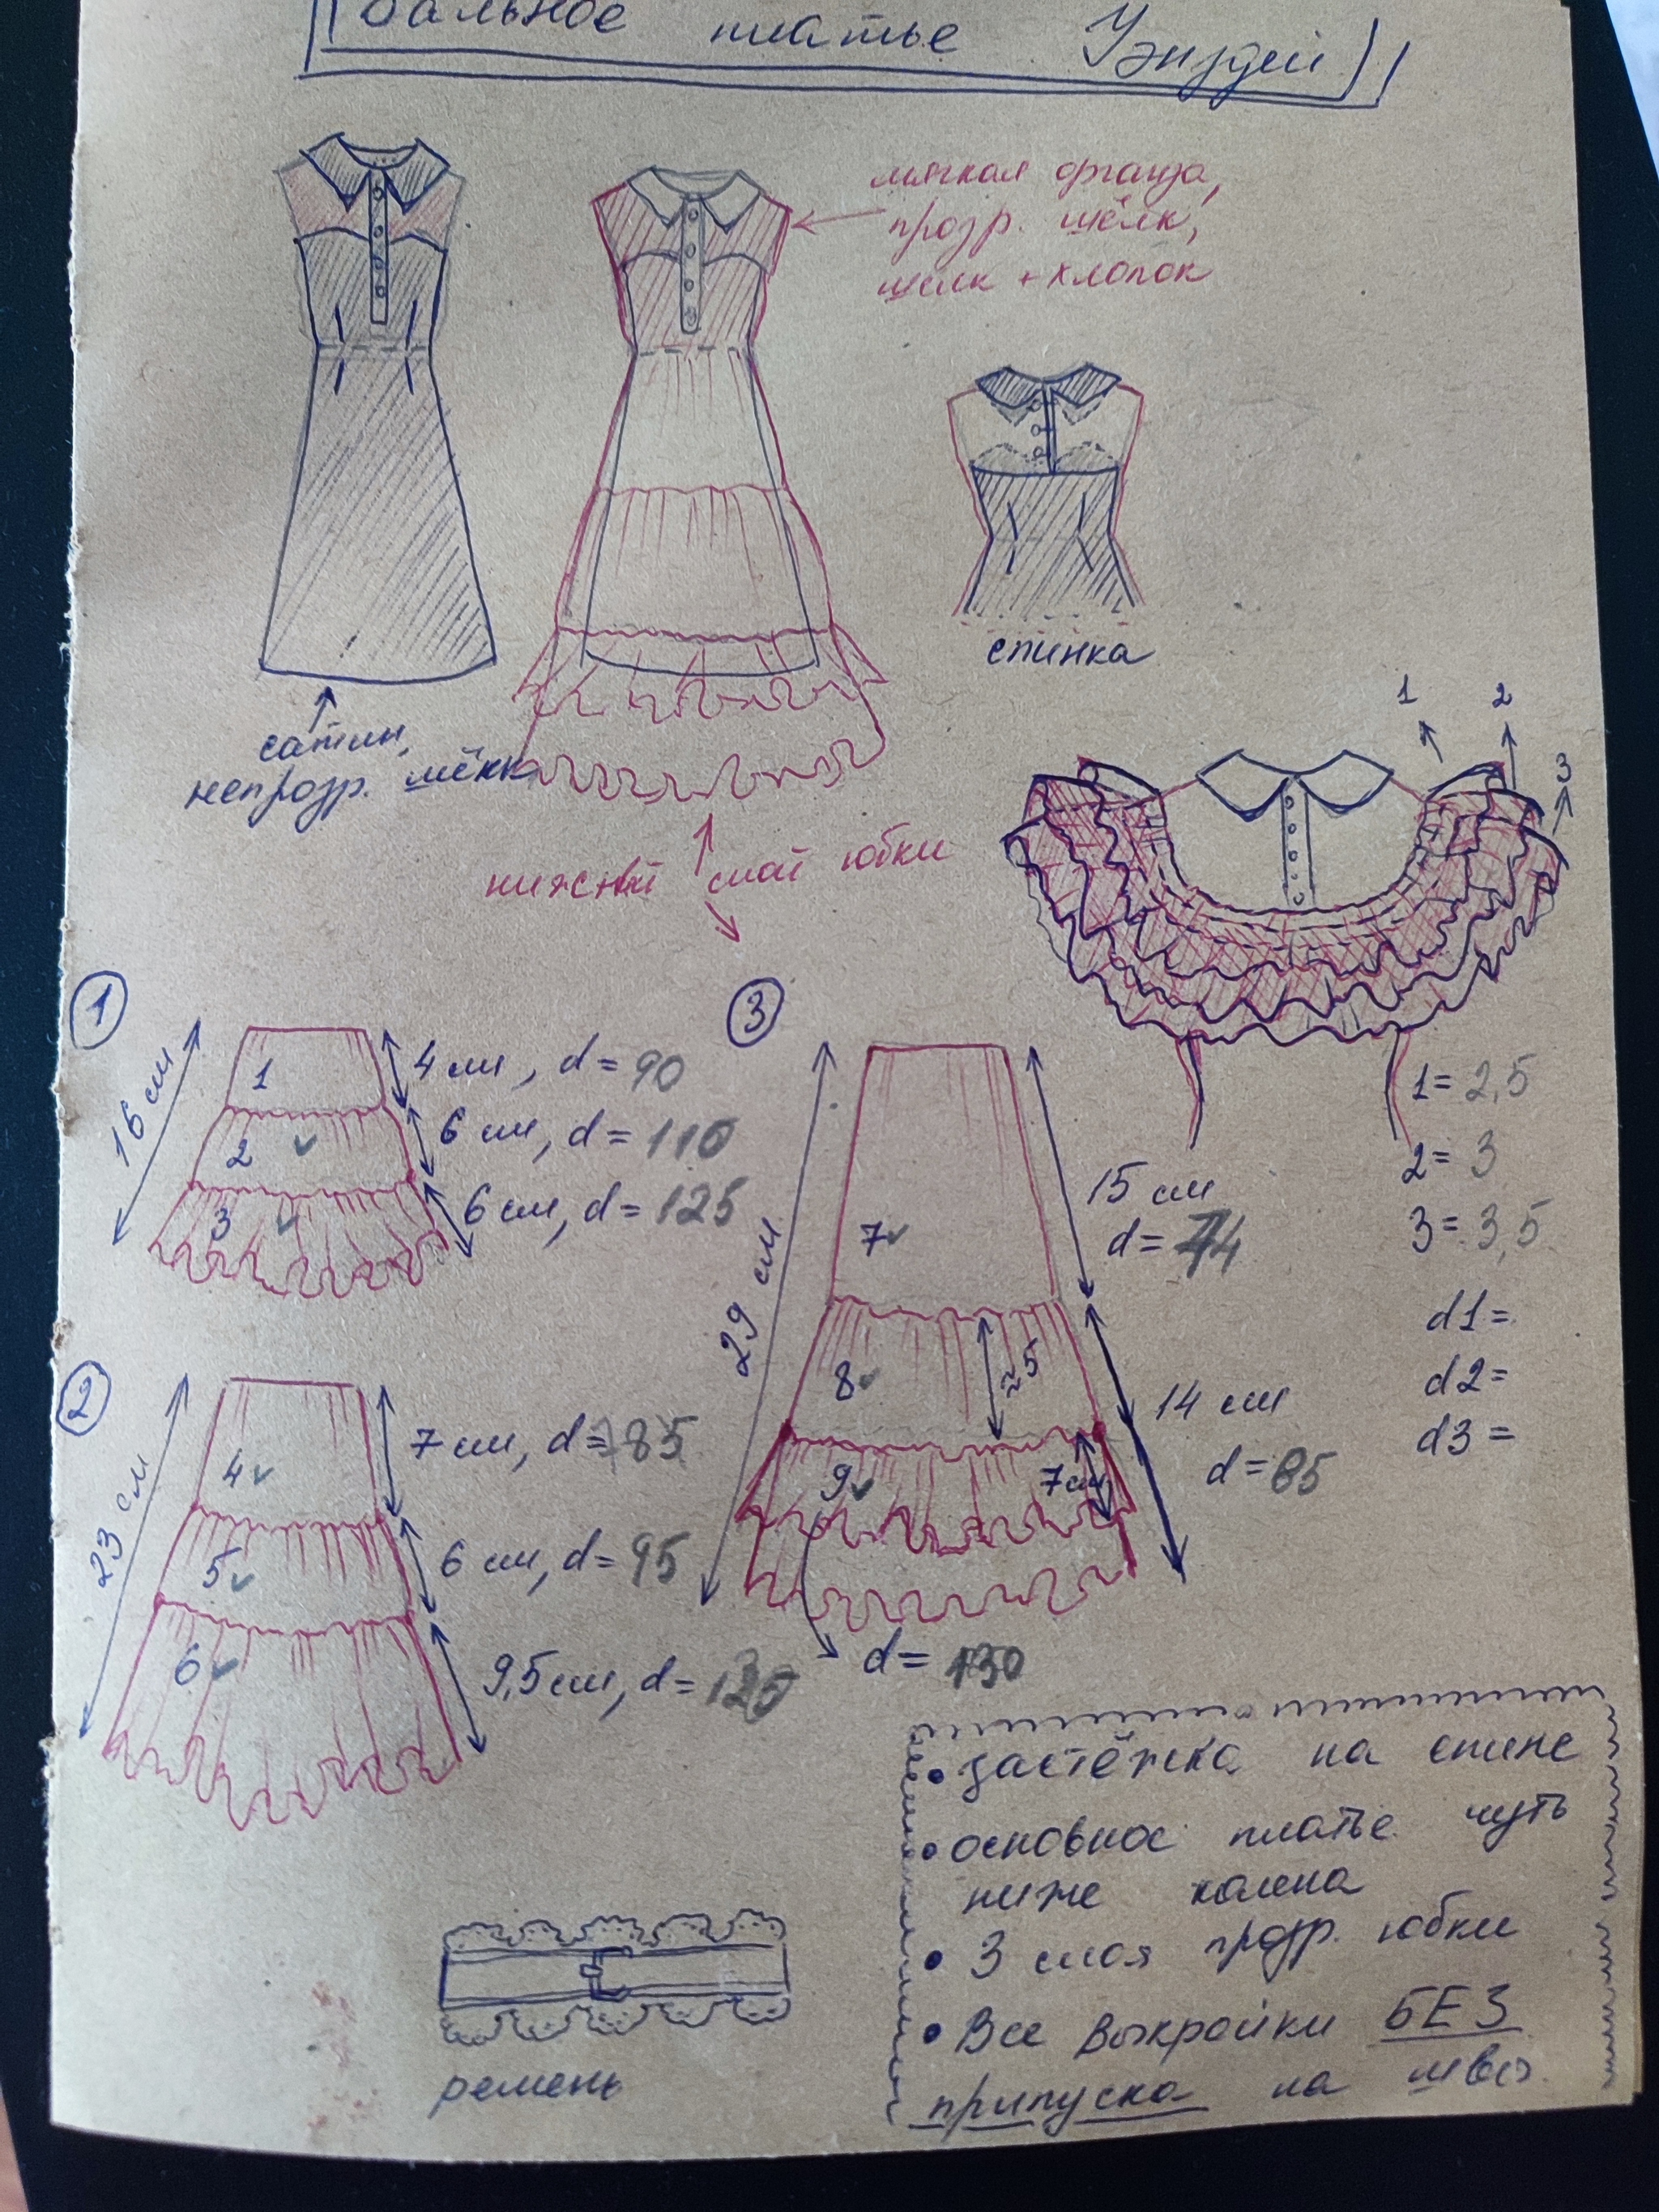 Бальное платье Уэнздей
мягкая органза,
прозр. шёлк,
шёлк + хлопок
спинка
сатин,
непрозр. шёлк
1 2 3
нижний слой юбки
1
16 см
1
4 см, d= 90
2
6 см, d= 110
3
6 см, d= 125
3
29 см
7
15 см
d= 74
8
≈5
14 см
d= 85
9
7 см
d= 130
1= 2,5
2= 3
3= 3,5
d1=
d2=
d3=
2
23 см
4
7 см, d= 85
5
6 см, d= 95
6
9,5 см, d=
• застёжка на спине
• основное платье чуть
ниже колена
• 3 слоя прозр. юбки
• Все выкройки БЕЗ
припуска на швы.
ремень